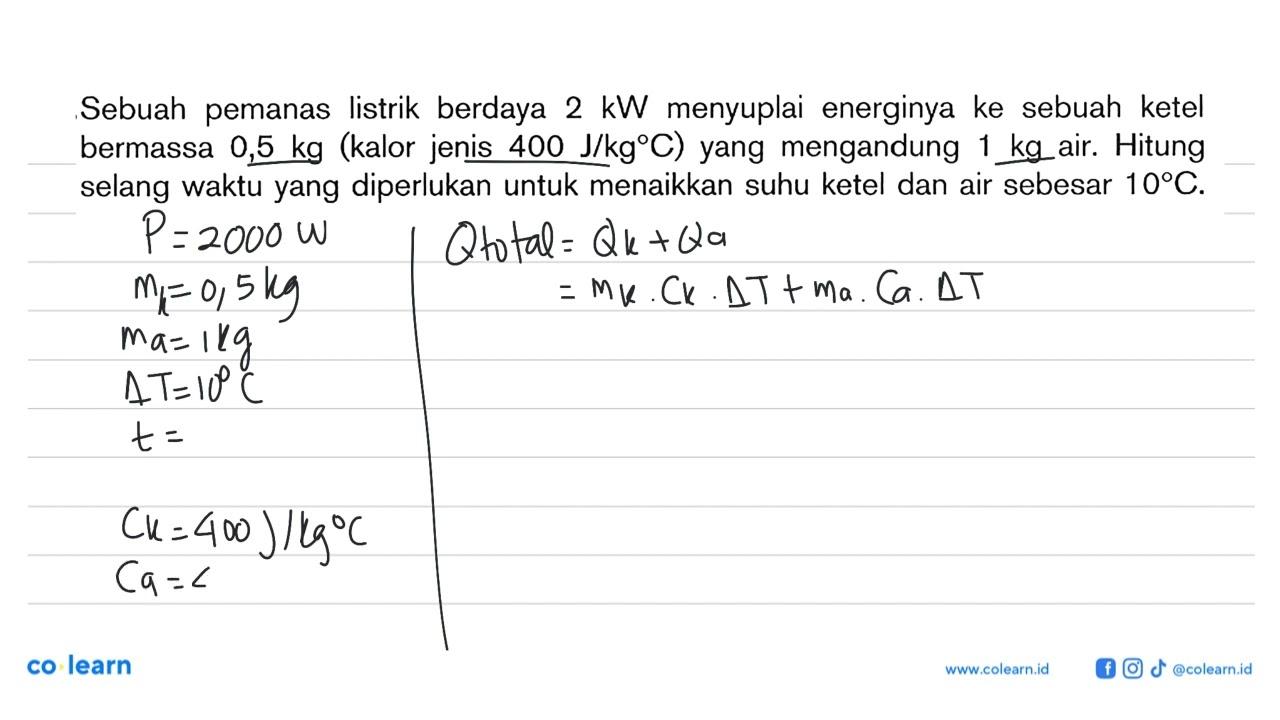 Sebuah pemanas listrik berdaya 2 kW menyuplai energinya ke sebuah ketel
bermassa 0,5 kg (kalor jenis 400 J/kg°C) yang mengandung 1 kg air. Hitung
selang waktu yang diperlukan untuk menaikkan suhu ketel dan air sebesar 10°C.
P = 2000 W
mk = 0,5 kg
ma = 1 kg
ΔT = 10°C
t =
Ck = 400 J/kg°C
Ca = <
Qtotal = Qk + Qa
= mk . Ck . ΔT + ma . Ca . ΔT
co learn
www.colearn.id
@colearn.id